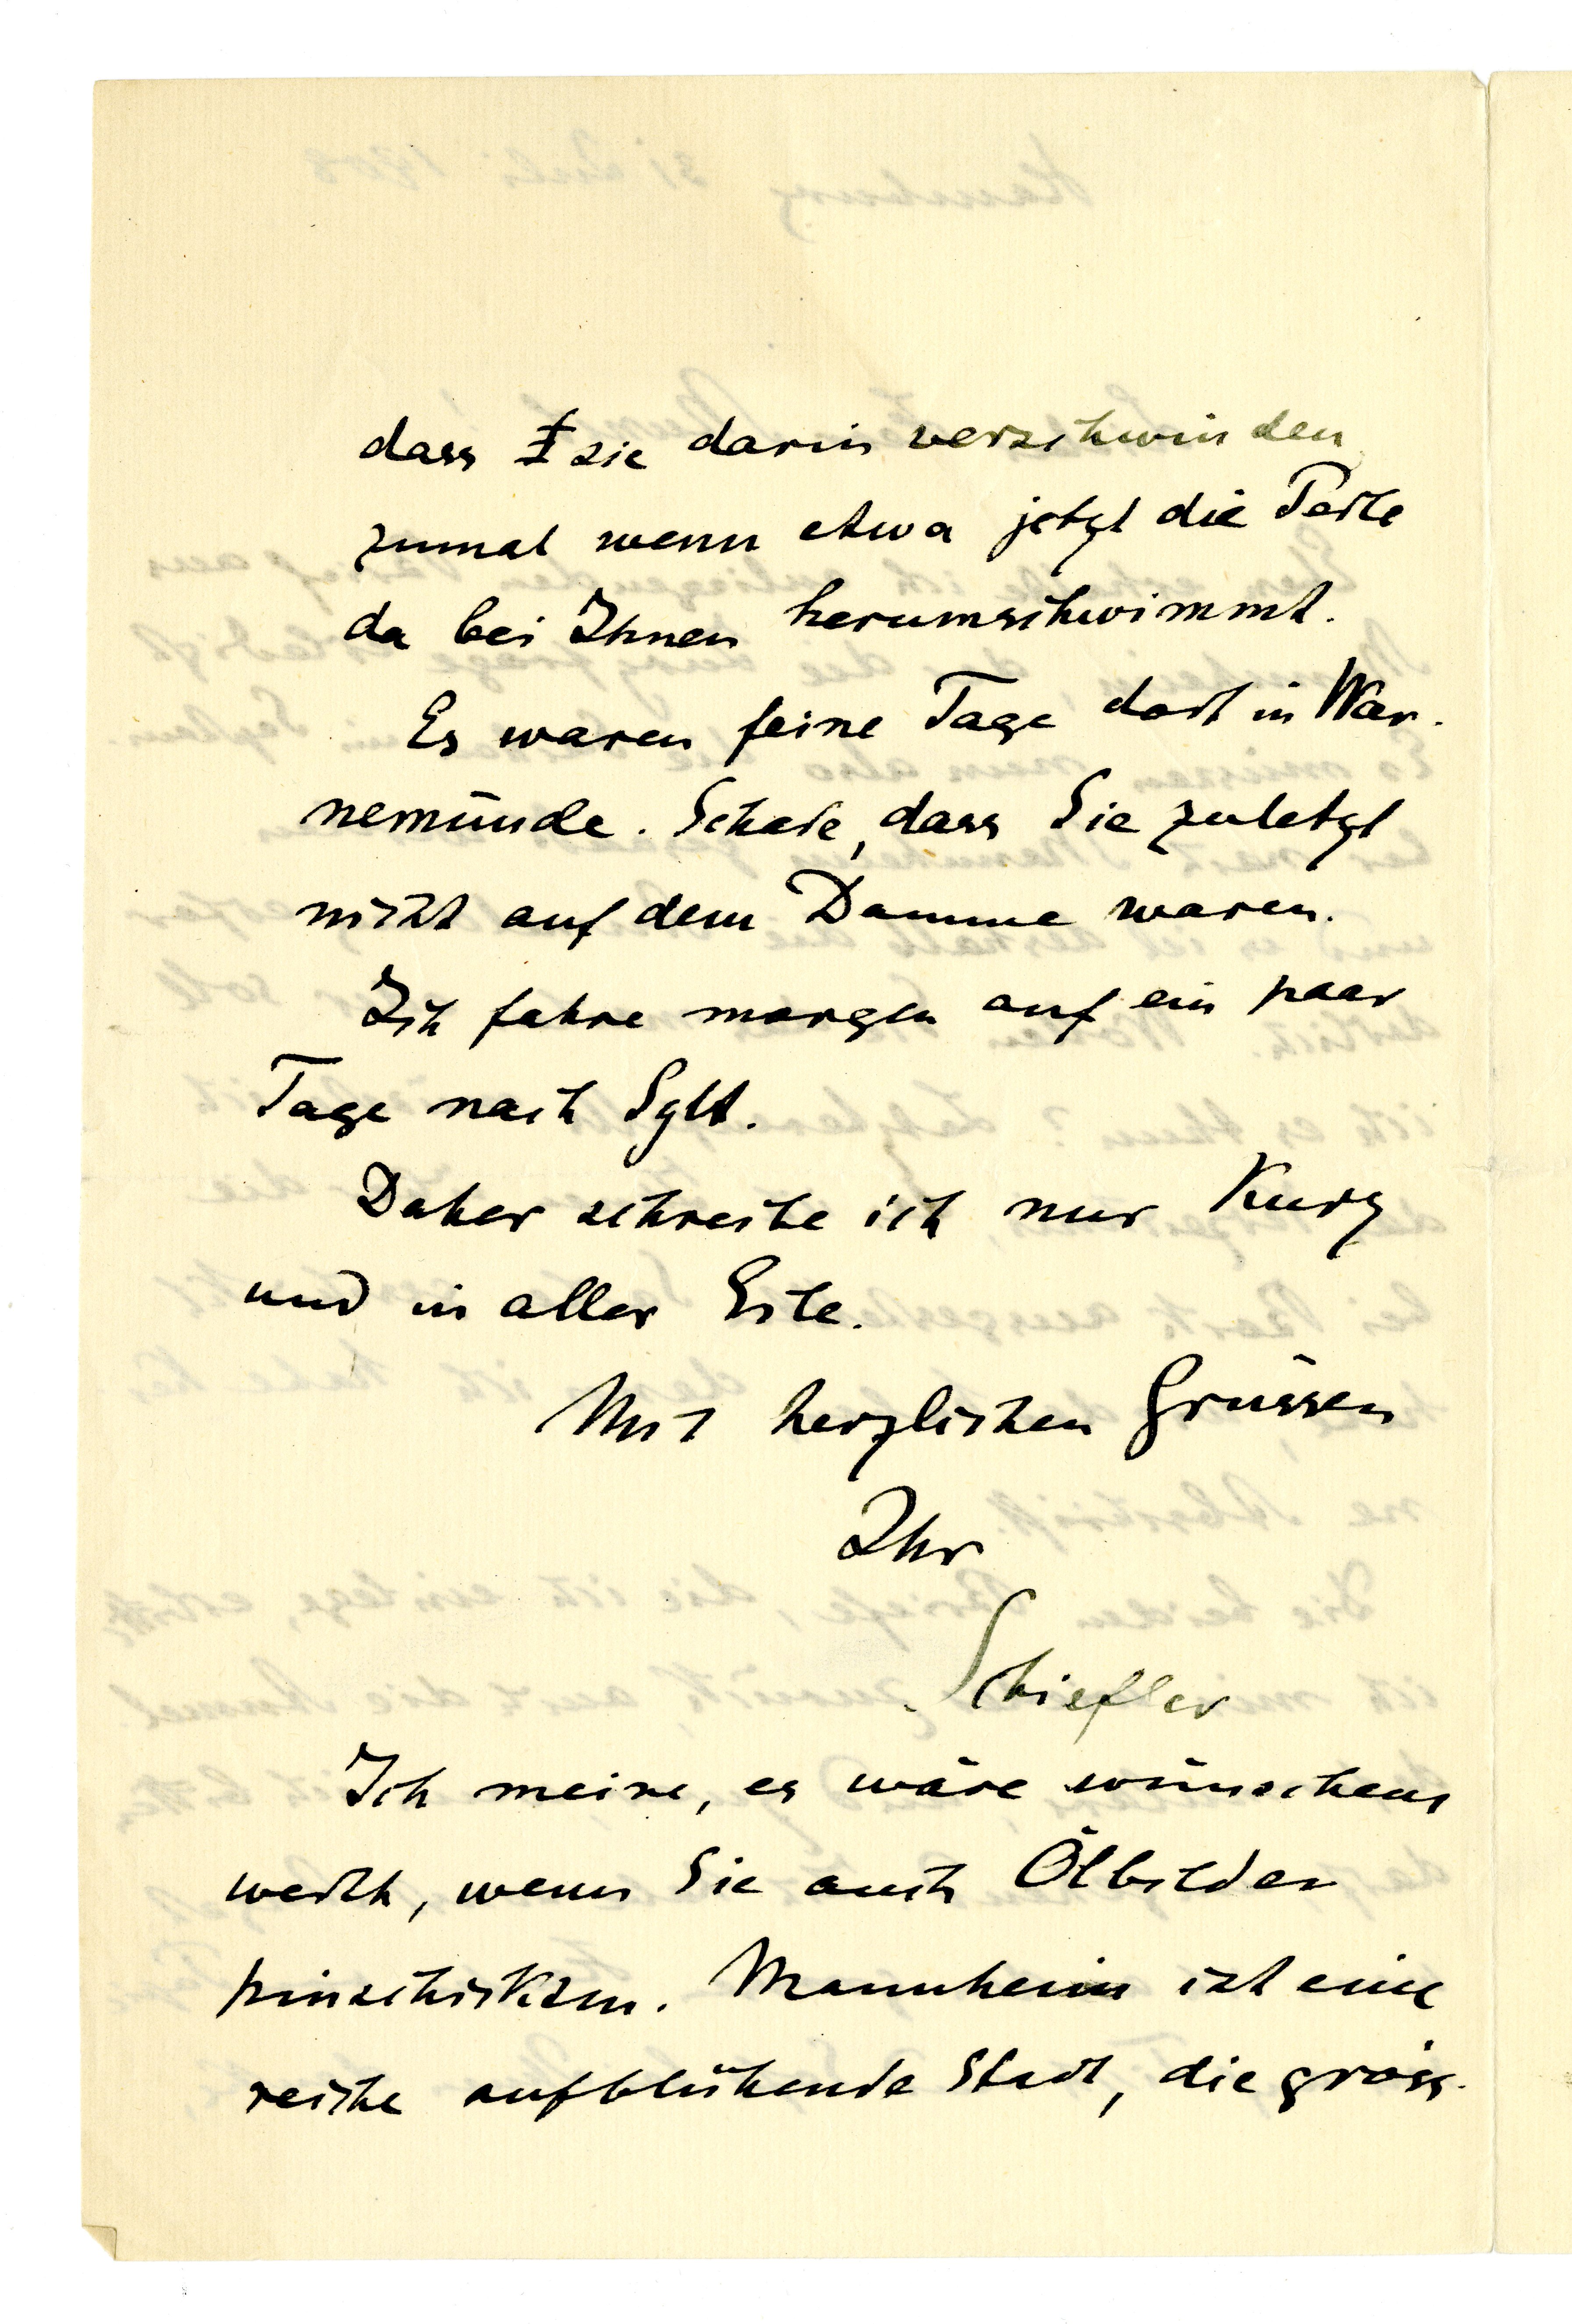 dass sie darin verschwinden
zumal wenn etwa jetzt die
da bei Ihnen herumschwimmt.
Es waren feine Tage dort in War-
nemünde. Schade, dass Sie zuletzt
nicht auf dem Damme waren.
Ich fahre morgen auf ein paar
Tage nach Sylt.
Daher schreibe ich nur kurz
und in aller Eile.
Mit herzlichen Grüssen
Ihr
Schiefler
Ich meine, es wäre wünschens
werth, wenn Sie auch Ölbilder
hinschickten. Mannheim ist eine
reiche aufblühende Stadt, die gröss-